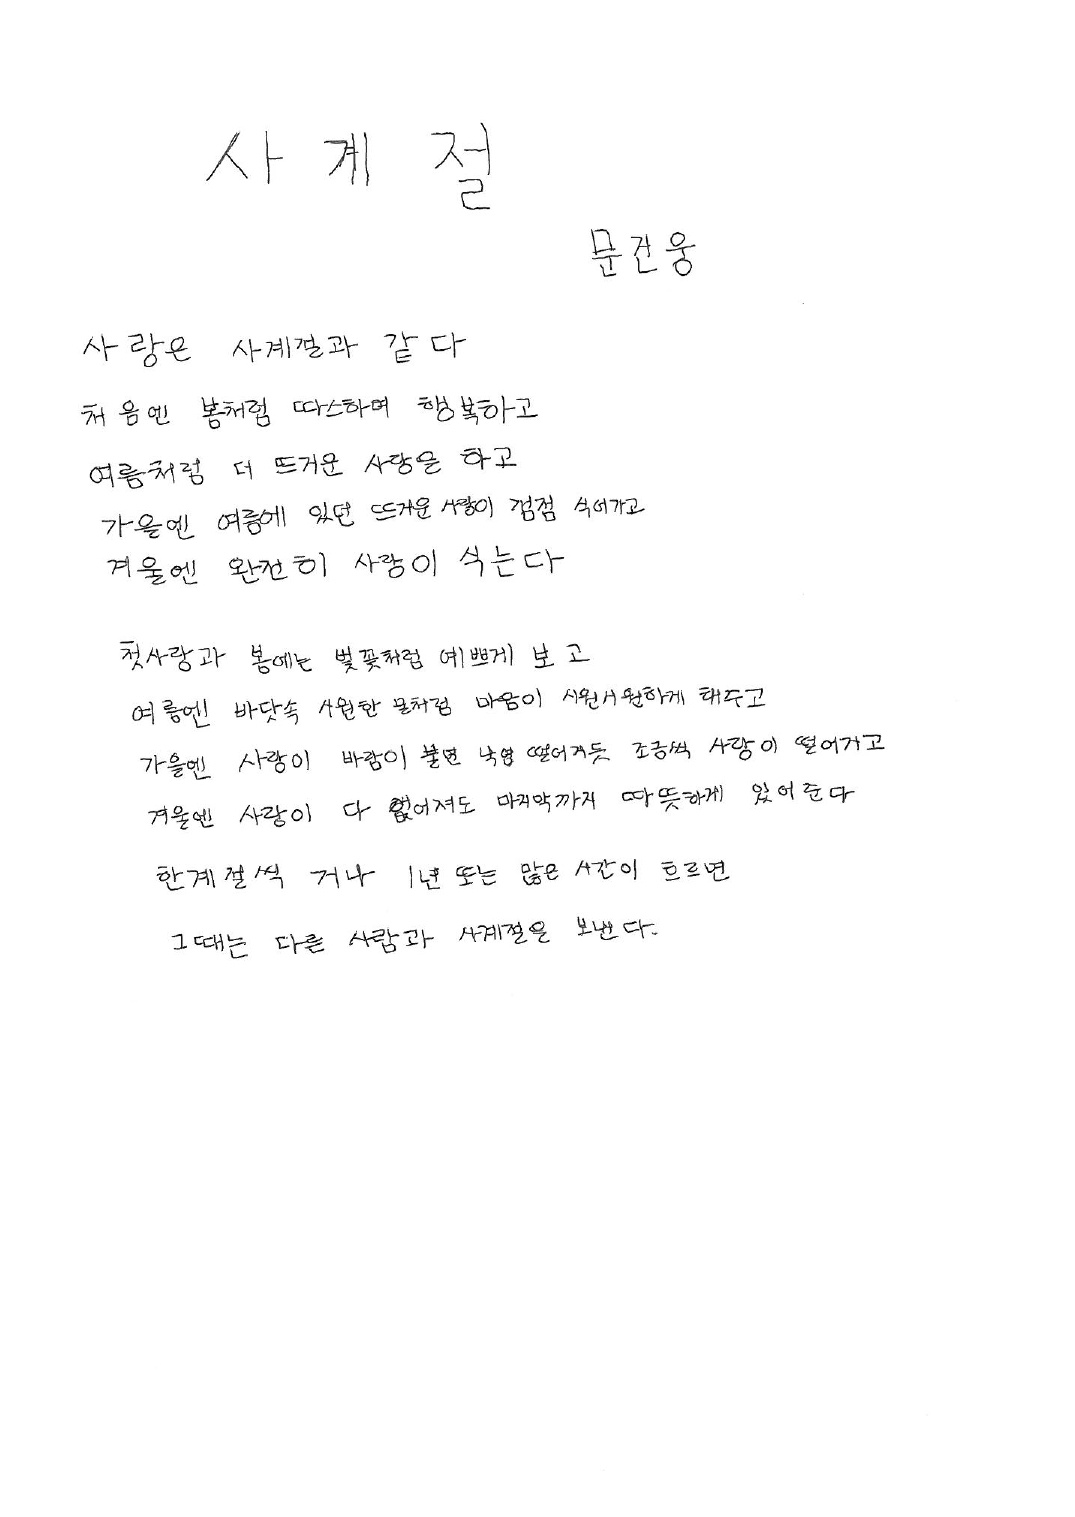 사계절
문건웅
사랑은 사계절과 같다
처음엔 봄처럼 따스하며 행복하고
여름처럼 더 뜨거운 사랑을 하고
가을엔 여름에 있던 뜨거운 사랑이 점점 식어가고
겨울엔 완전히 사랑이 식는다
첫사랑과 봄에는 벚꽃처럼 예쁘게 보고
여름엔 바닷속 시원한 물처럼 마음이 시원시원하게 해주고
가을엔 사랑이 바람이 불면 낙엽 떨어지듯 조금씩 사랑이 떨어지고
겨울엔 사랑이 다 없어져도 마지막까지 따뜻하게 있어준다
한계절씩 거나 1년 또는 많은 시간이 흐르면
그때는 다른 사람과 사계절을 보낸다.